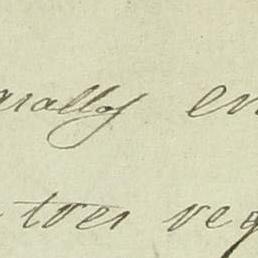 arally en
toes veg